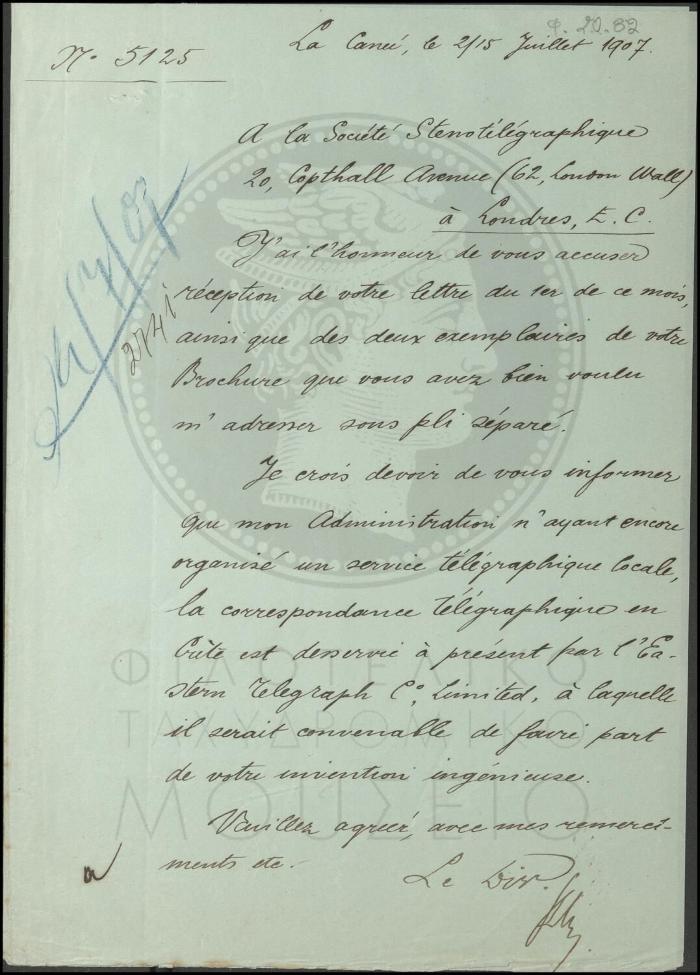 Φ. 20.82
No 5125
La Canée, le 2/15 Juillet 1907.
A la Société Stenotélégraphique
20, Copthall Avenue (62, London Wall)
à Londres, E. C.
J'ai l'honneur de vous accuser
réception de votre lettre du 1er de ce mois,
ainsi que des deux exemplaires de votre
Brochure que vous avez bien voulu
m'adresser sous pli séparé.
Je crois devoir de vous informer
que mon Administration n'ayant encore
organisé un service télégraphique locale,
la correspondance télégraphique en
Crète est desservie à présent par l'Ea-
stern Telegraph Co. Limited, à laquelle
il serait convenable de faire part
de votre invention ingénieuse.
Veuillez agréer, avec mes remercî-
ments etc.
Le Dir.
ΦΙΛΟΤΕΛΙΚΟ
ΤΑΧΥΔΡΟΜΙΚΟ
ΜΟΥΣΕΙΟ